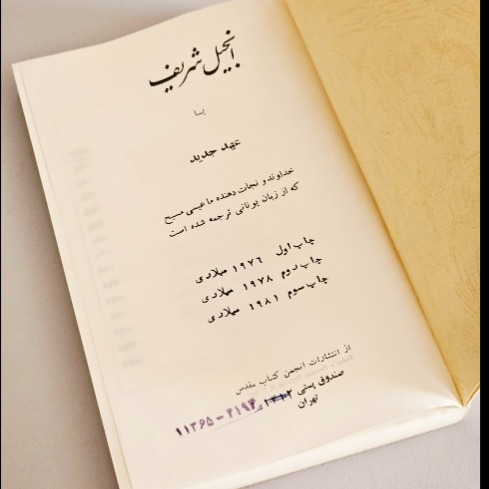 انجیل شریف
یا
عهد جدید
خداوند و نجات دهنده ما عیسی مسیح
که از زبان یونانی ترجمه شده است
چاپ اول ۱۹۷۶ میلادی
چاپ دوم ۱۹۷۸ میلادی
چاپ سوم ۱۹۸۱ میلادی
از انتشارات انجمن کتاب مقدس
صندوق پستی
۱۱۳۶۵ - ۴۱۹۴
تهران